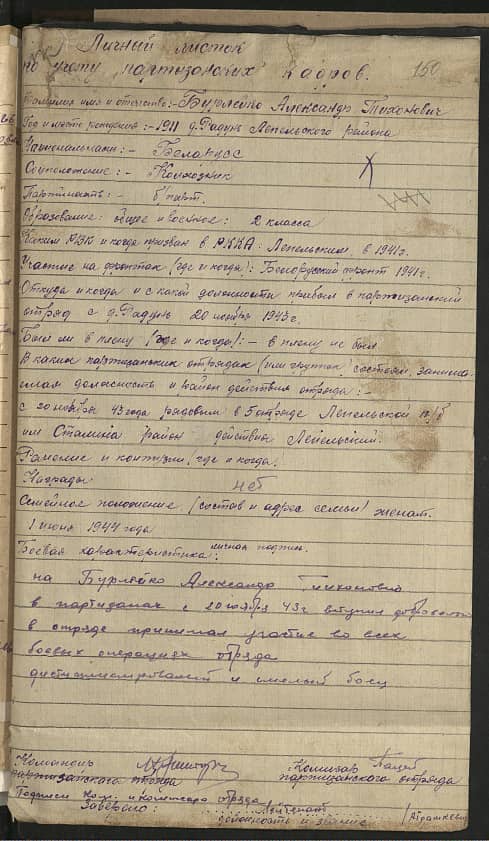 Личный листок
по учету партизанских кадров.
150
Фамилия имя и отчество:- Бурлейко Александр Тихонович
Год и место рождения:- 1911 д. Радунь Лепельского района
Национальность:- Беларусс
Соцположение:- Колхозник
Партийность:- б/парт.
Образование: общее и военное: 2 класса
Каким РВК и когда призван в РККА: Лепельским, в 1941г.
Участие на фронтах /где и когда/: Белорусский фронт 1941г.
Откуда и когда и с какой должности прибыл в партизанский
отряд с д. Радунь 20 ноября 1943г.
Был ли в плену /где и когда/:- в плену не был
В каких партизанских отрядах /или группах/ состоял, занима-
емая должность и район действия отряда:-
с 20 ноября 43 года рядовым в 5 отряде Лепельской п/б
им Сталина район действия Лепельский.
Ранение и контузии /где и когда/
Награды нет
Семейное положение /состав и адрес семьи/ женат.
1 июня 1944 года
личная подпись.
Боевая характеристика:
на Бурлейко Александр Тихонович
в партизанах с 20 ноября 43г вступил
в отряде принимал участие во всех
боевых операциях отряда
дисциплинированый и смелый боец
Командир Комиссар
партизанского отряда партизанского отряда
Подписи ком. и комиссара отряда
Заверяю:
должность и звание